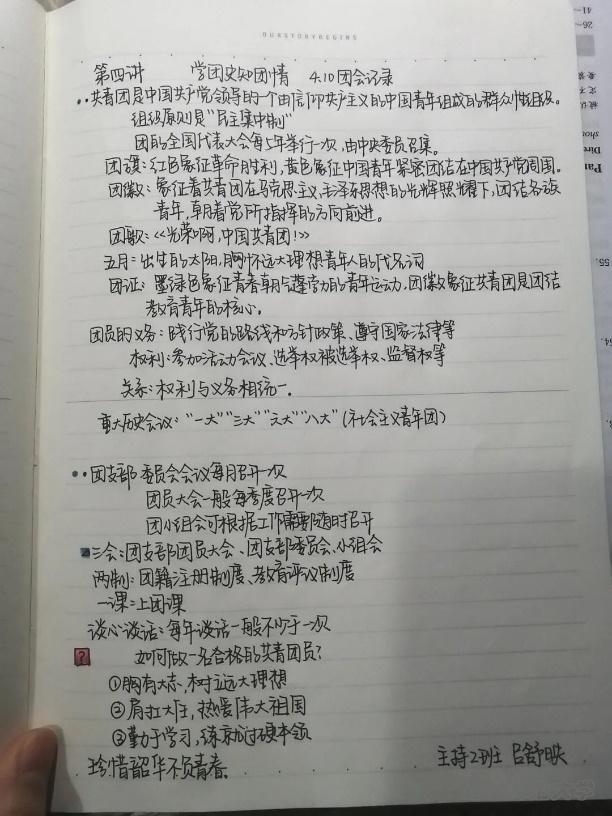 OURSTORYBEGINS
第四讲 学团史知团情 4.10团会记录
··共青团是中国共产党领导的一个由信仰共产主义的中国青年组成的群众性组织。
组织原则是"民主集中制"
团的全国代表大会每5年举行一次,由中央委员召集。
团旗:红色象征革命胜利,黄色象征中国青年紧密团结在中国共产党周围。
团徽:象征着共青团在马克思主义,毛泽东思想的光辉照耀下,团结各族
青年,朝着党所指挥的方向前进。
团歌:《光荣啊,中国共青团!》
五月:出生的太阳,胸怀远大理想青年人的代名词
团证:墨绿色象征青春朝气蓬勃的青年运动,团徽象征共青团是团结
教育青年的核心。
团员的义务:践行党的路线和方针政策、遵守国家法律等
权利:参加活动会议、选举权被选举权、监督权等
关系:权利与义务相统一.
重大历史会议:"一大""三大""六大""八大"(社会主义青年团)
··团支部委员会会议每月召开一次
团员大会一般每季度召开一次
团小组会可根据工作需要随时召开
三会:团支部团员大会、团支部委员会、小组会
两制:团籍注册制度、教育评议制度
一课:上团课
谈心谈话:每年谈话一般不少于一次
? 如何做一名合格的共青团员?
①胸有大志,树立远大理想
②肩扛大任,热爱伟大祖国
③勤于学习,练就过硬本领
珍惜韶华不负青春.
主持2班 吕舒映
41~
26~
Dire
Par
55.
54.